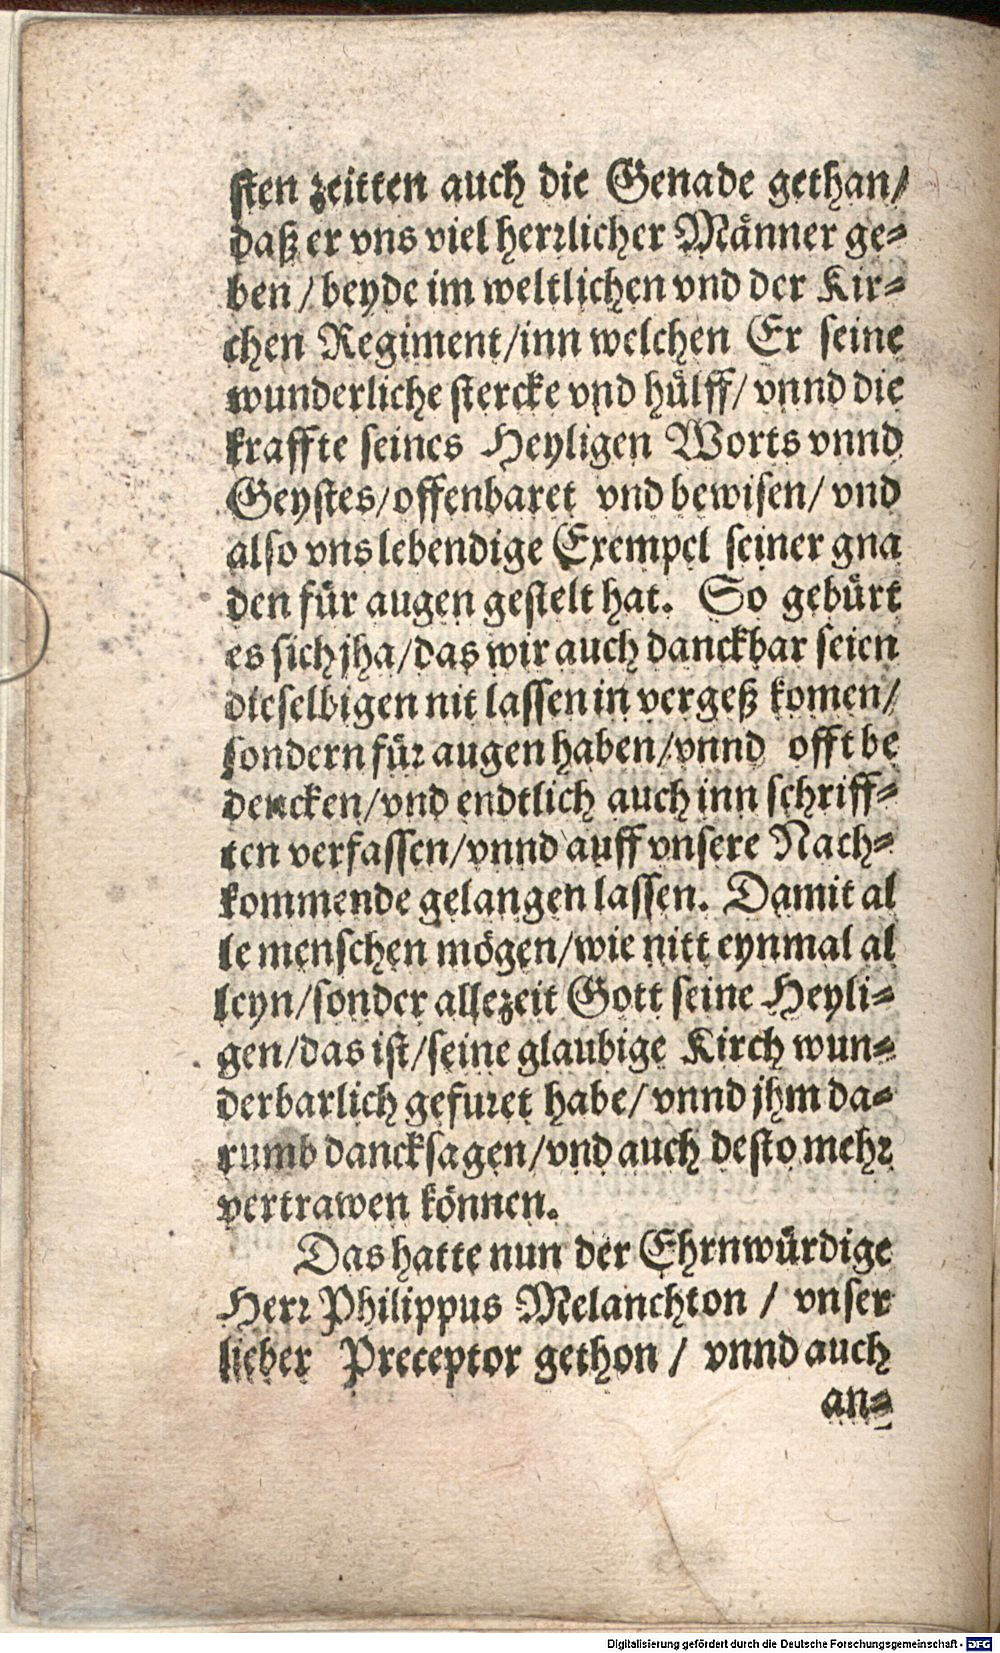 sten zeitten auch die Genade gethan/
daß er vns viel herrlicher Männer ge-
ben / beyde im weltlichen vnd der Kir-
chen Regiment/inn welchen Er seine
wunderliche stercke vnd hülff/ vnnd die
kraffte seines Heyligen Worts vnnd
Geystes/offenbaret vnd bewisen/ vnd
also vns lebendige Exempel seiner gna
den für augen gestelt hat. So gebürt
es sich jha/das wir auch danckbar seien
dieselbigen nit lassen in vergeß komen/
sondern für augen haben/vnnd offt be
dencken/vnd endtlich auch inn schriff-
ten verfassen/vnnd auff vnsere Nach-
kommende gelangen lassen. Damit al
le menschen mögen/wie nitt eynmal al
leyn/sonder allezeit Gott seine Heyli-
gen/das ist/seine glaubige Kirch wun-
derbarlich gefuret habe/ vnnd jhm da-
rumb dancksagen/vnd auch desto mehr
vertrawen können.
Das hatte nun der Ehrnwürdige
Herr Philippus Melanchton / vnser
lieber Preceptor gethon / vnnd auch
an-
Digitalisierung gefördert durch die Deutsche Forschungsgemeinschaft - DFG